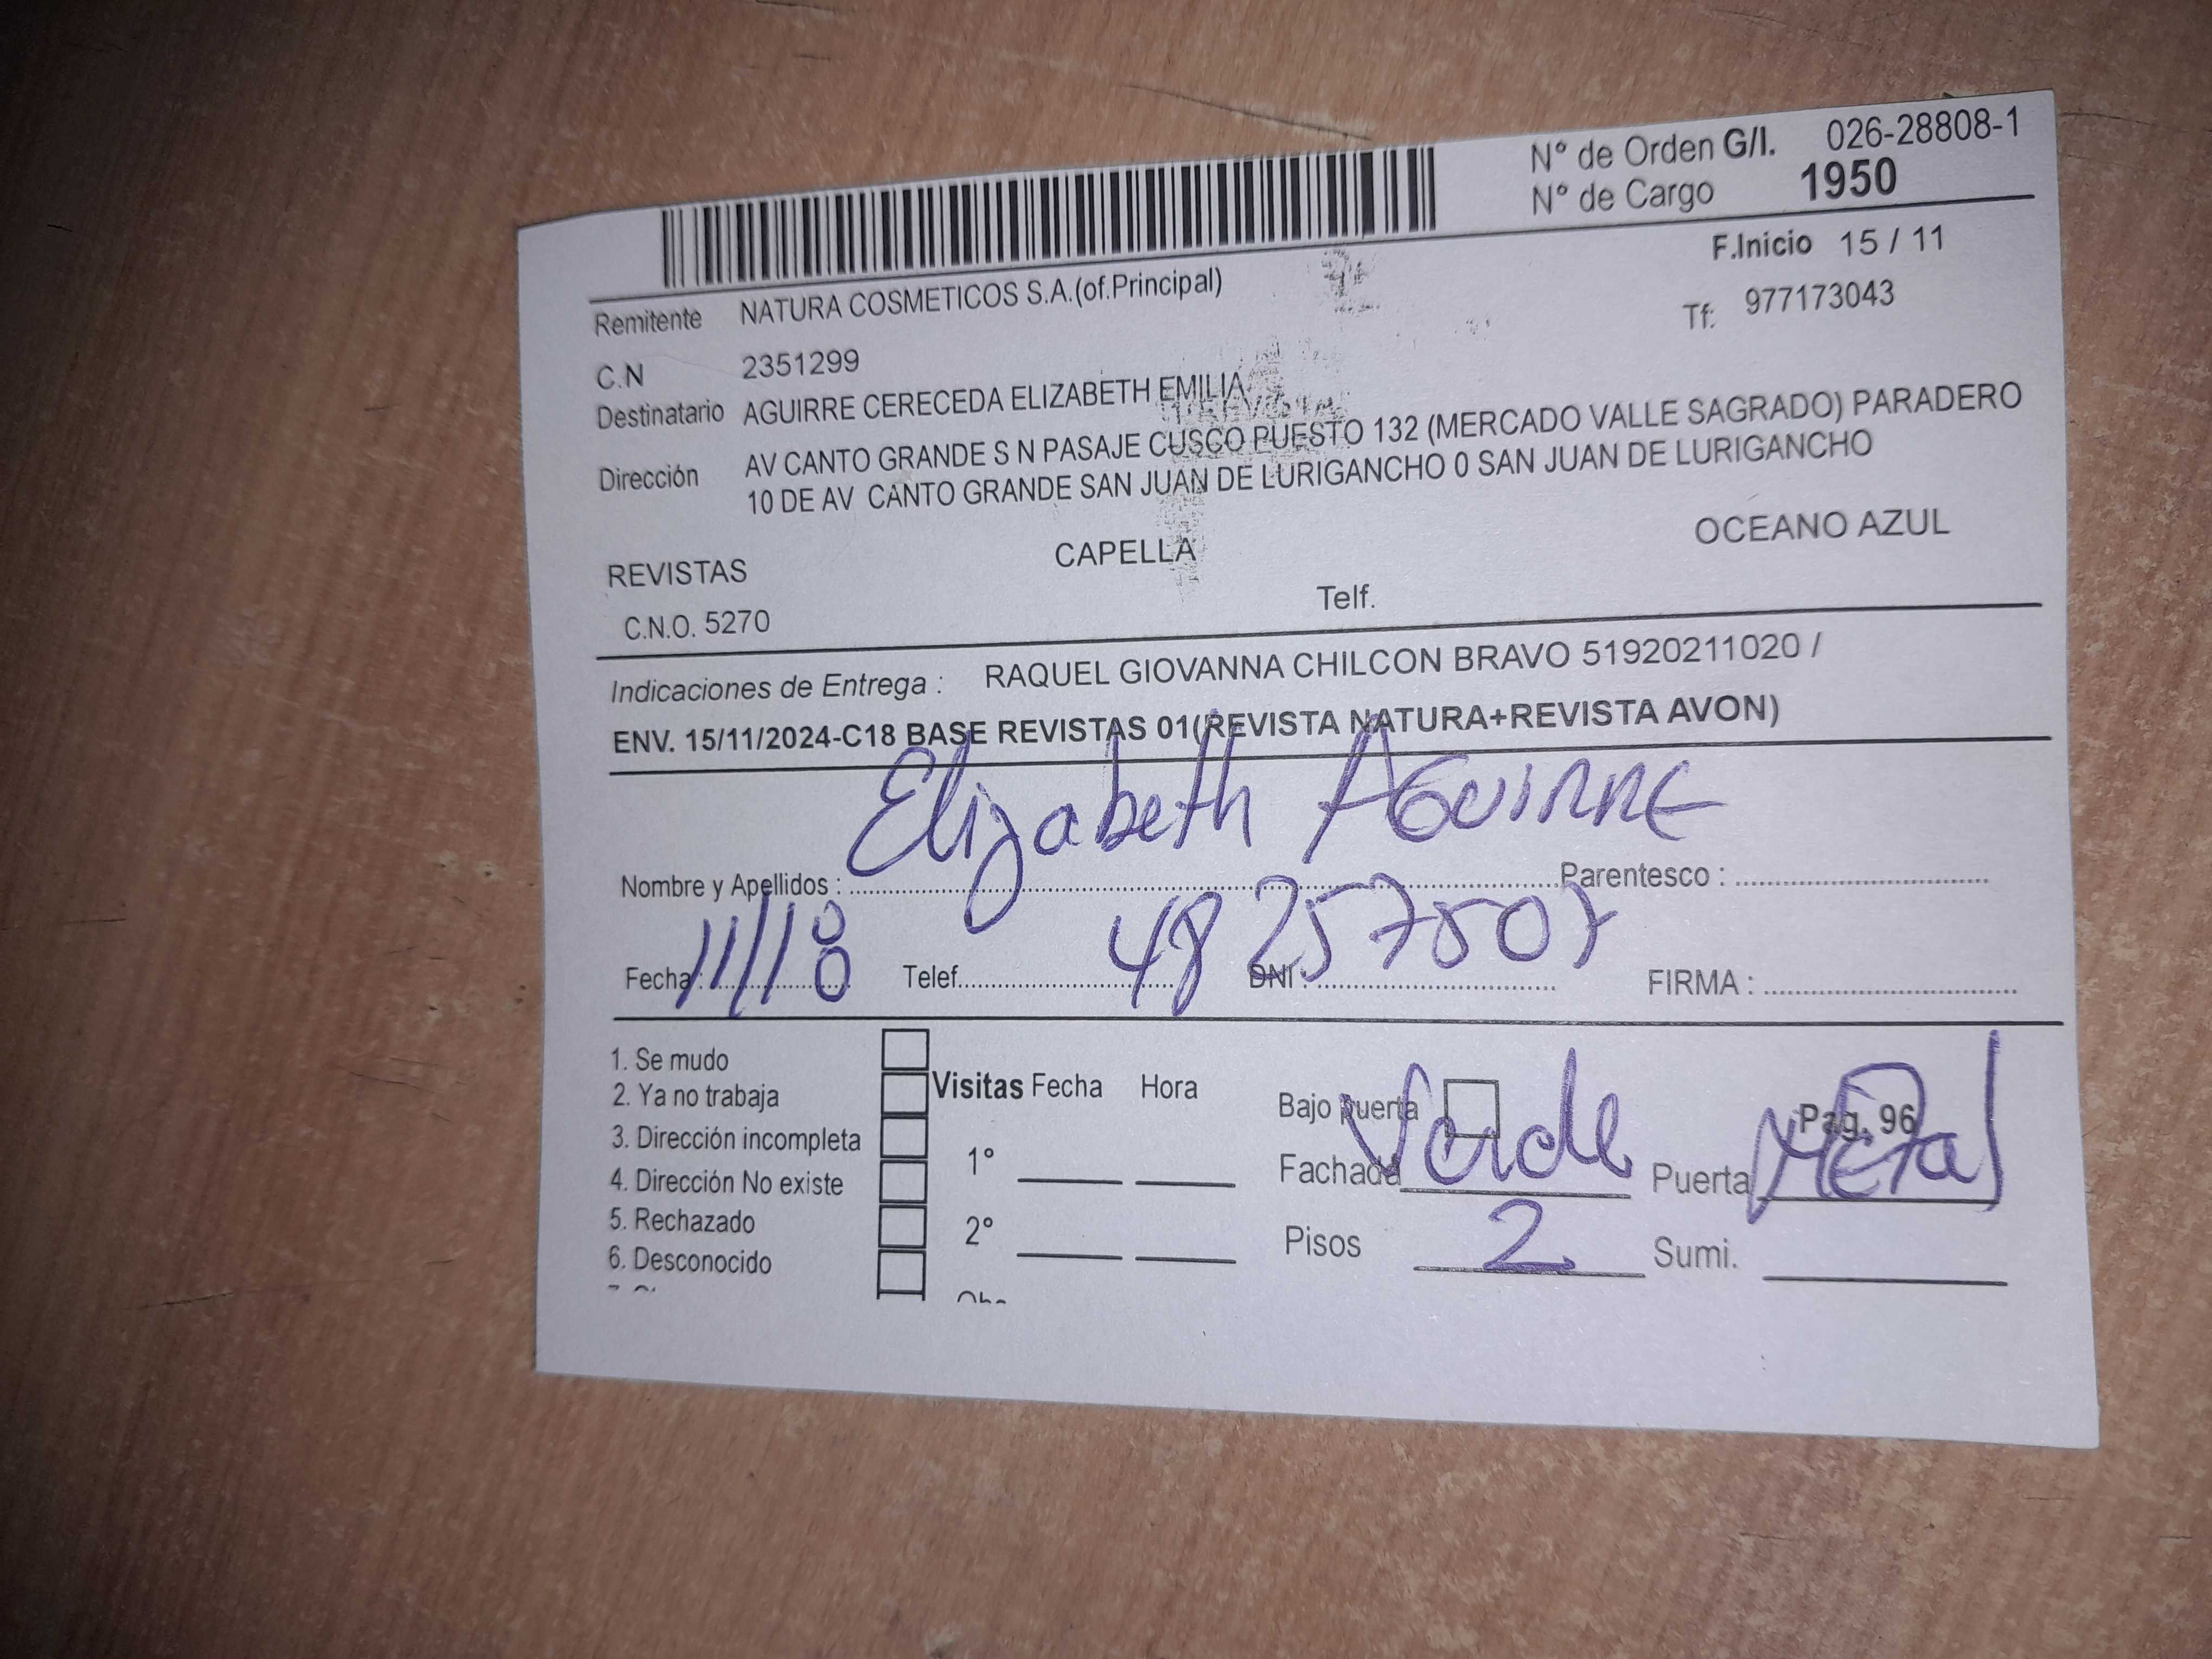 N° de Orden G/I. 026-28808-1
N° de Cargo 1950
F.Inicio 15 / 11
Remitente NATURA COSMETICOS S.A.(of.Principal)
Tf: 977173043
C.N 2351299
Destinatario AGUIRRE CERECEDA ELIZABETH EMILIA
Dirección AV CANTO GRANDE S N PASAJE CUSCO PUESTO 132 (MERCADO VALLE SAGRADO) PARADERO
10 DE AV CANTO GRANDE SAN JUAN DE LURIGANCHO 0 SAN JUAN DE LURIGANCHO
REVISTAS CAPELLA OCEANO AZUL
C.N.O. 5270 Telf.
Indicaciones de Entrega : RAQUEL GIOVANNA CHILCON BRAVO 51920211020 /
ENV. 15/11/2024-C18 BASE REVISTAS 01(REVISTA NATURA+REVISTA AVON)
Nombre y Apellidos : Elizabeth AGUIRRE Parentesco :
Fecha : 11/18 Telef. DNI : 48257507 FIRMA :
1. Se mudo
2. Ya no trabaja
3. Dirección incompleta
4. Dirección No existe
5. Rechazado
6. Desconocido
Visitas Fecha Hora
1°
2°
Bajo puerta Pag. 96
Fachada Verde Puerta Metal
Pisos 2 Sumi.